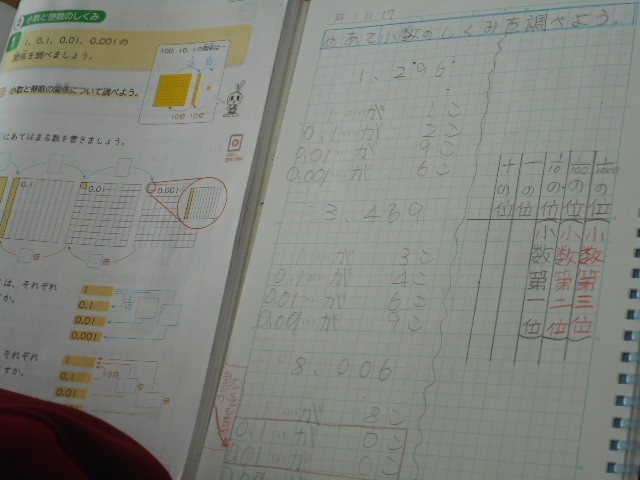 小数と整数のしくみ
1 1、0.1、0.01、0.001の
関係を調べましょう。
100、10、1の関係は…
10こ 10こ
小数と整数の関係について調べよう。
にあてはまる数を書きましょう。
0.1
0.01
0.001
倍
倍
は、それぞれ
すか。
1
0.1
0.01
0.001
それぞれ
すか。
1
0.1
0.01
めあて小数のしくみを調べよう。
1.296
1…が 1こ
0.1…が 2こ
0.01…が 9こ
0.001…が 6こ
3.469
が 3こ
が 4こ
0.01…が 6こ
0.001…が 9こ
8.006
…が 8こ
0.1…が 0こ
0.01…が 0こ
十の位
一の位
1/10の位(小数第一位)
1/100の位(小数第二位)
1/1000の位(小数第三位)